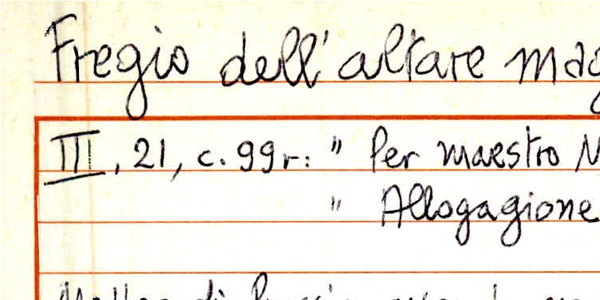 Fregio dell'altare mag
III, 21, c. 99r: " Per maestro M
" Allogagione
Matteo di